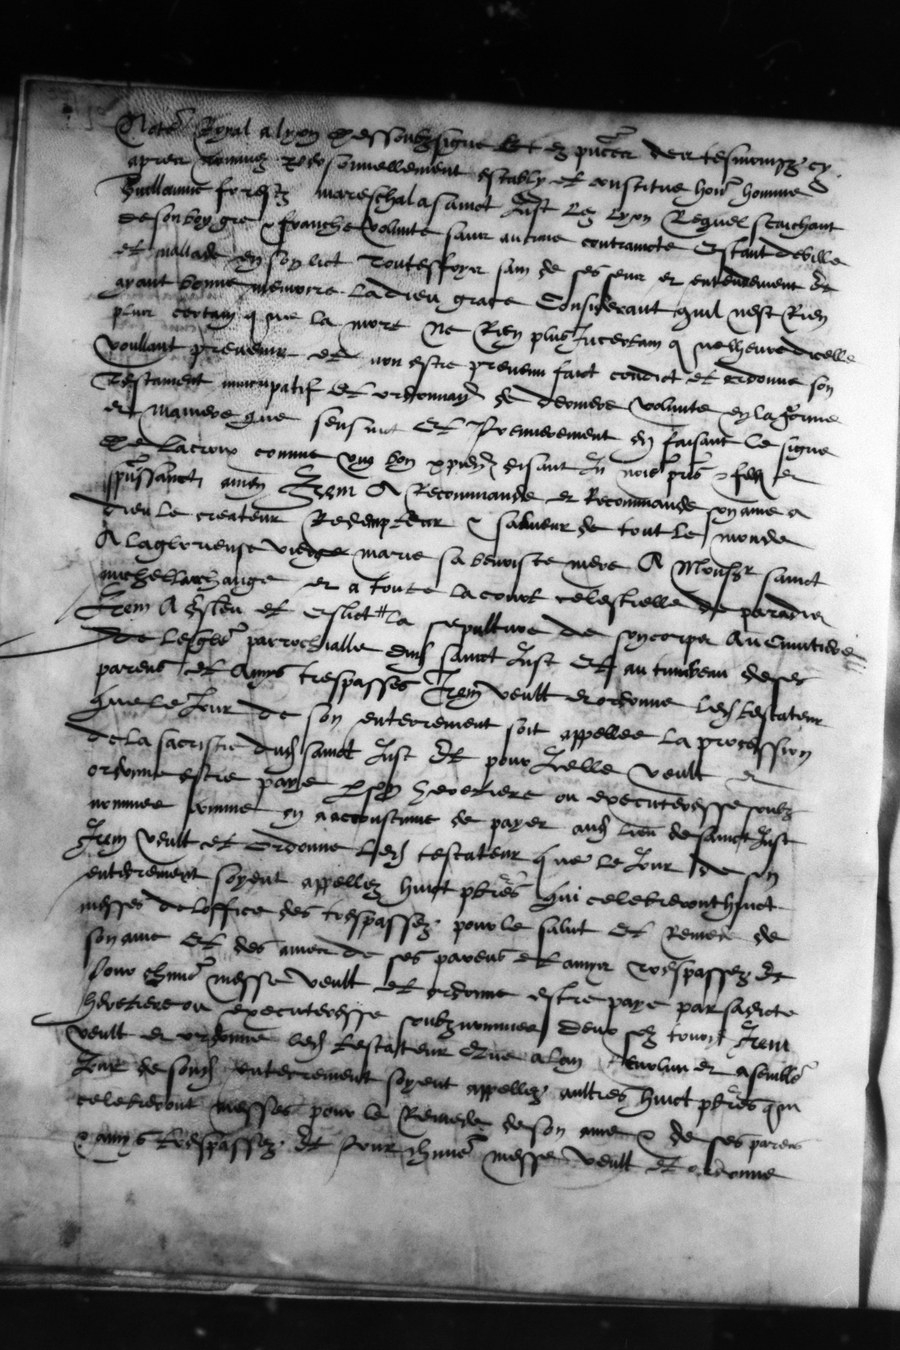 Not.re Royal a lyon dessoubzsigne Et en pn̄ce des tesmoingz cy
apres nommez personnellement estably et constitue hon.r homme
Guillaume forestz mareschal a sainct Just lez lyon Lequel scaichant
de son bon gre & franche volunte sans aucune contraincte Estant debille
et mallade en son lict Toutesfoys sain de ses sens et entendement Et
ayant bonne memoire la dieu grace Considerant quil nest Rien
plus certain que la mort Ne Rien plus Incertain q̄ lheure dicelle
Voullant prevenir et non estre prevenu faict condict et ordonne son
Testament nuncupatif et ordonnan̄ de derniere volunte en la forme
et maniere que sensuit Et Premierement en faisant le signe
de la croix comme ung bon xp̄ien disant In noīe pr̄is & filii et
sp̄ussancti amen Item A Recommande et Recommande son ame a
dieu le createur Redempteur & saulveur de tout le monde
A la glorieuse vierge marie sa benoiste mere A Monsr̄ sainct
michel larchange et a toute la court celestielle de paradis
Item A Esleu et Eslict la sepulture de son corps Au Cimitiere
de leglis̄e parrochialle dud̄ sainct Just Et au tumbeau de ses
parens et Amys trespasses Item veult et ordonne led̄ testateur
que le Jour de son enterrement soit appellee la procession
de la sacristie dud̄ sainct Just Et pour Icelle veult et
ordonne estre paye p̄ son heretiere ou executeresse soubz
nommee comme on a accoustume de payer aud̄ lieu de sainct Just
Item veult et Ordonne led̄ testateur que le Jour de son
enterrement soyent appellez huict pb̄res qui celebreront huict
messes de loffice des trespassez pour le salut Et Remede de
son ame Et des ames de ses parens et amys trespassez Et
Pour chūne messe veult et ordonne estre paye par sadicte
heretiere ou executeresse soubznommee deux solz tourn̄ Item
veult et ordonne led̄ testateur que a lan Revolu et a semblē
Jour de sond̄ enterrement soyent appellez aultres huict pb̄res qui
celebreront messes pour le Remede de son ame & de ses parens
& amys trespassez Et Pour chūne messe veult et ordonne